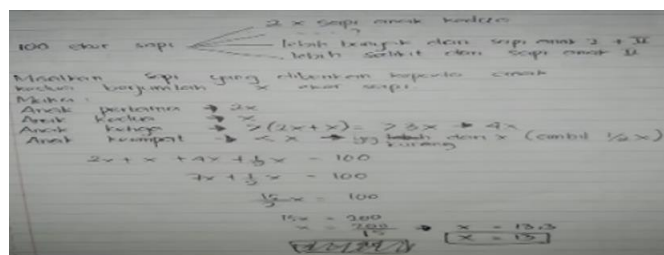 2 x sapi anak kedua
100 ekor sapi
lebih banyak dari sapi anak I + II
lebih sedikit dari sapi anak II
Misalkan sapi yang diberikan kepada anak
kedua berjumlah x ekor sapi.
Maka:
Anak pertama → 2x
Anak kedua → x
Anak ketiga → > (2x + x) = > 3x → 4x
Anak keempat → < x → yg kurang dari x (ambil 1/2 x)
2x + x + 4x + 1/2 x = 100
7x + 1/2 x = 100
15/2 x = 100
15x = 200
x = 200/15 → x = 13,3
x = 13